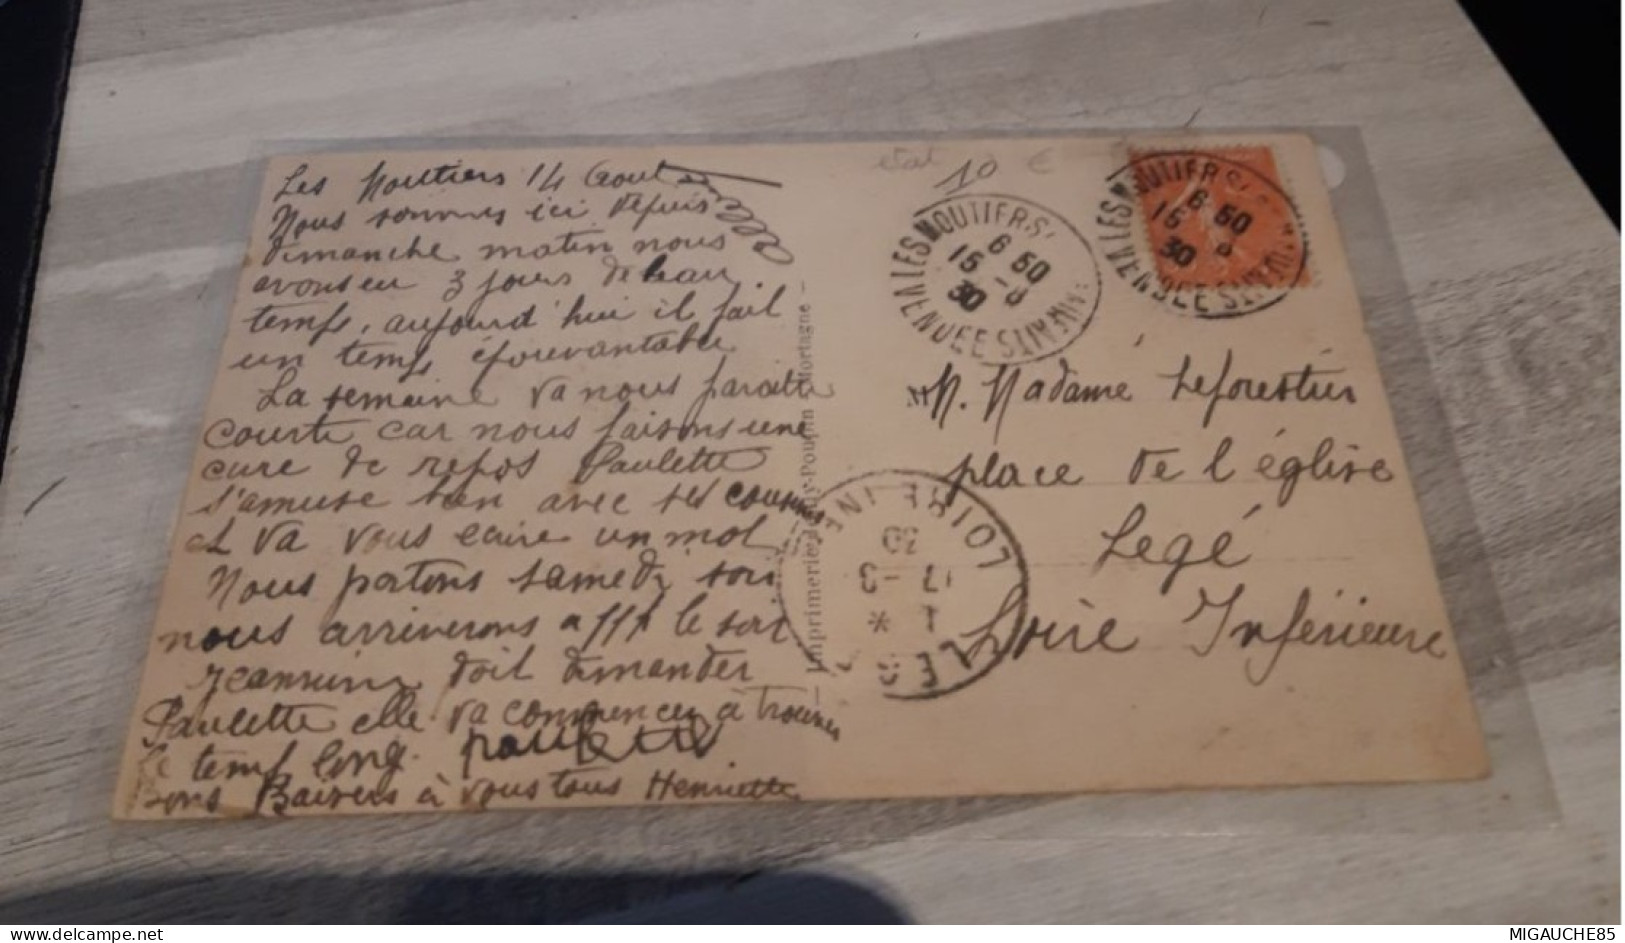 Les Moutiers 14 Aout
Nous sommes ici depuis
dimanche matin nous
avons eu 3 jours de beau
temps, aujourd'hui il fait
un temps épouvantable
La semaine va nous paraitre
courte car nous faisons une
cure de repos Paulette
s'amuse bien avec ses cousines
et va vous ecrire un mot
Nous partons samedi soir
nous arriverons a le soir
doit demander
Paulette elle va commencer à trouver
le temps long. paulette
Bons Baisers à vous tous Henriette
état 10 €
LES MOUTIERS
6 50
15 - 8
30
VENDEE
LES MOUTIERS
6 50
15 - 8
30
VENDEE
M. Madame Leforestier
place de l'église
Legé
Loire Inférieure
LEGÉ
LOIRE INF
1 *
17 - 8
30
— Imprimerie Poupin Mortagne —
www.delcampe.net
MIGAUCHE85